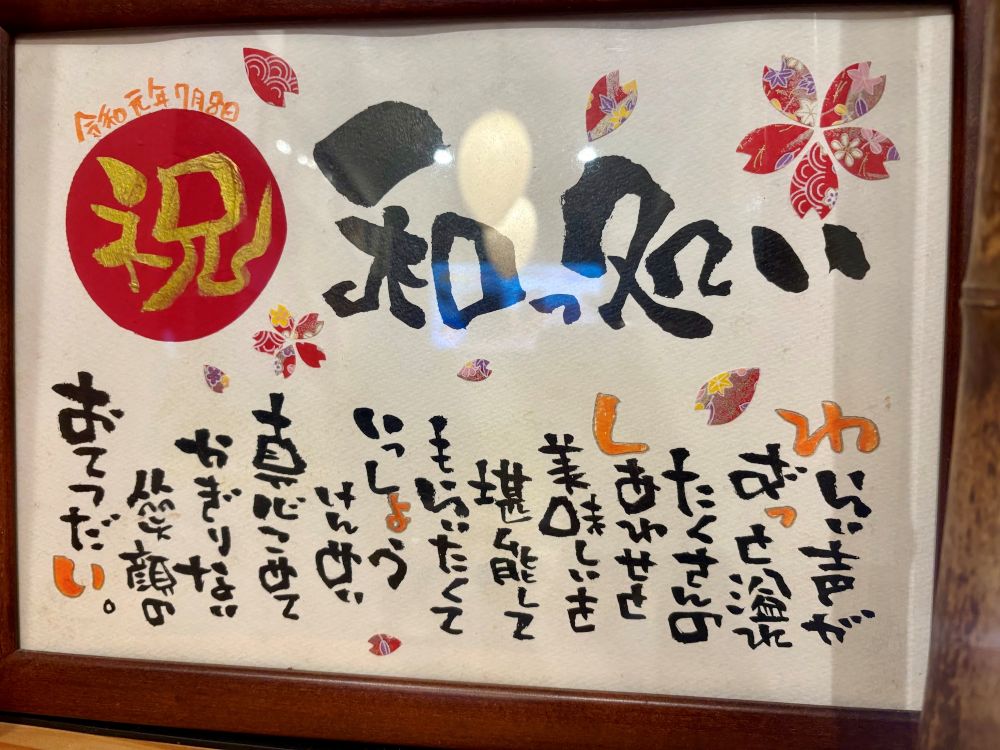 令和元年7月8日
祝
和っ処い
わらい声が
あっと溢れ
たくさんの
しあわせと
美味しいを
堪能して
もらいたくて
いっしょう
けんめい
真心こめて
かぎりない
笑顔の
おてつだい。